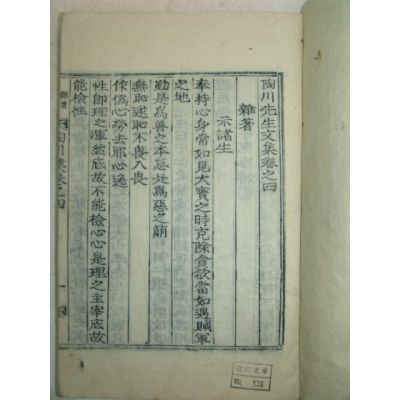 陶川先生文集卷之四
雜著
示諸生
奉持心身常如見大賓之時克除貪欲當如遇賊軍
之地
勤是爲善之本怠是爲惡之萠
無耻遠耻不喪入喪
作僞心勞去邪心逸
性卽理之渾然底故不能檢心心是理之主宰底故
能檢性
雜著 陶川集卷之四 一
文庫
No. 536